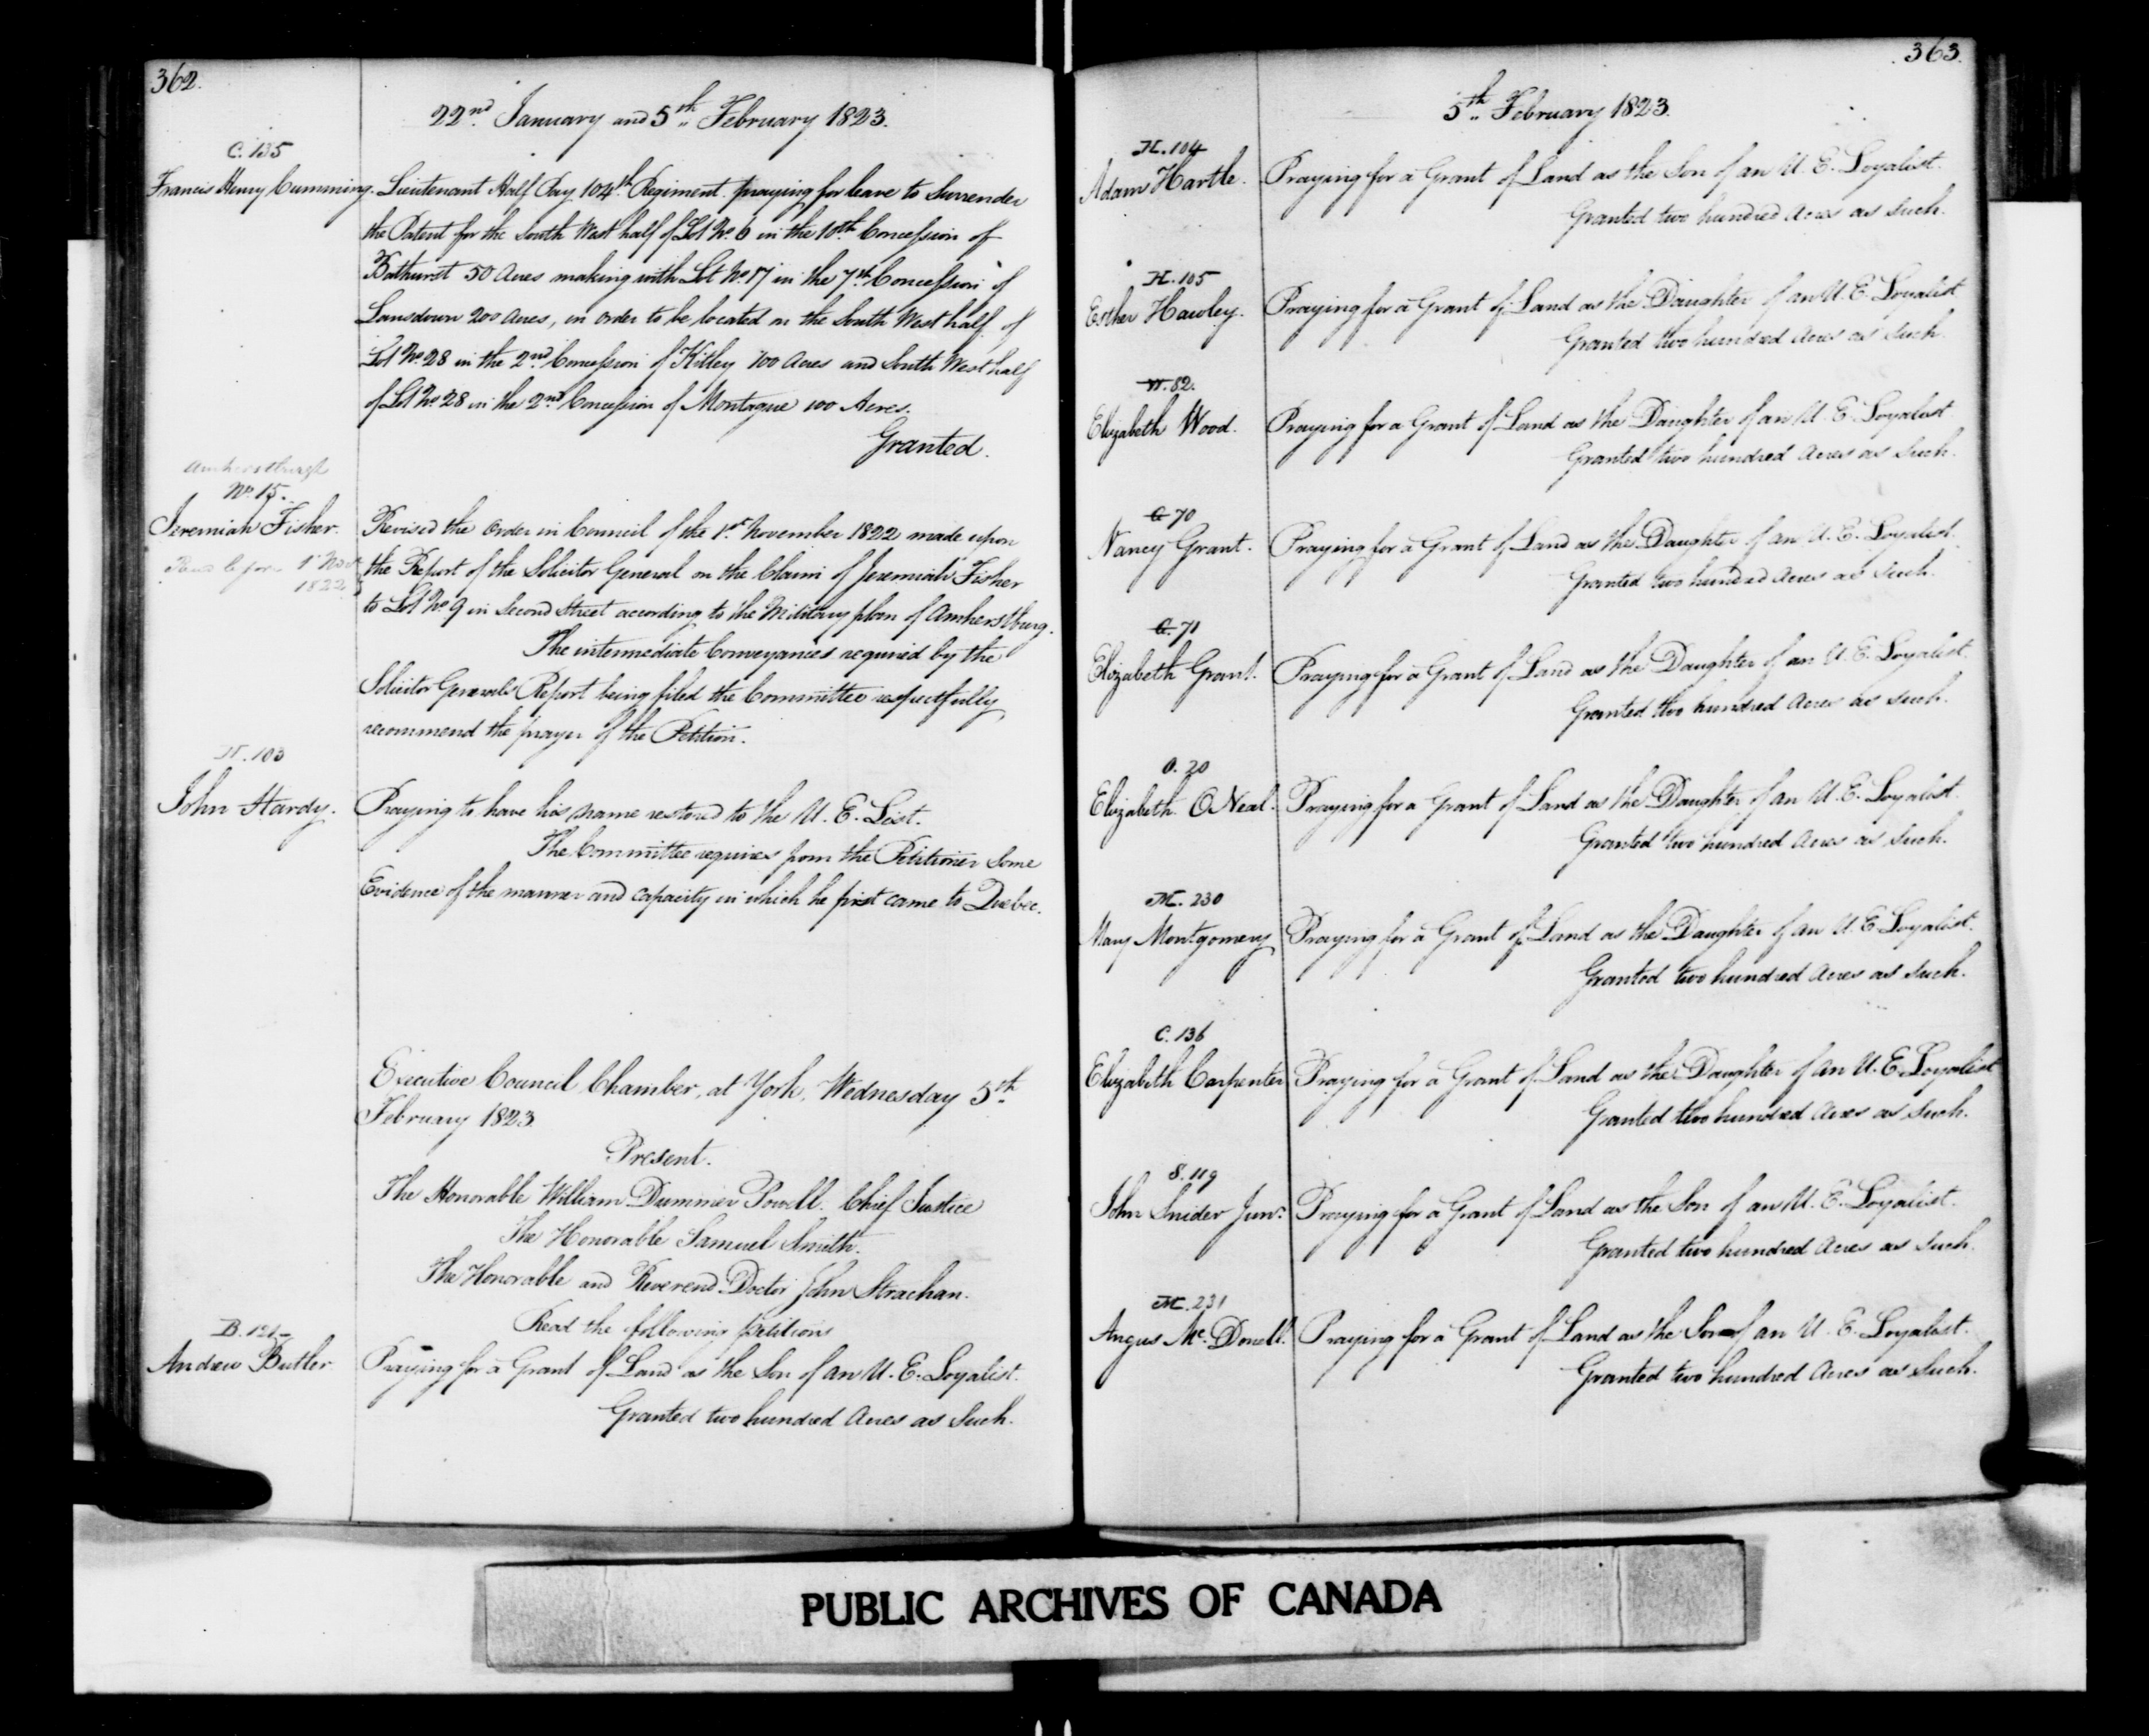 362.
22nd January and 5th February 1823.
C. 135
Francis Henry Cumming. Lieutenant Half Pay 104th Regiment. praying for leave to Surrender
the Patent for the South West half of Lot No. 6 in the 10th Concession of
Bathurst 50 Acres making with Lot No. 17 in the 7th Concession of
Lansdown 200 Acres, in order to be located on the South West half of
Lot No. 28 in the 2nd Concession of Kitley 100 Acres and South West half
of Lot No. 28 in the 2nd Concession of Montague 100 Acres.
Granted.
Amherstburgh
No. 15.
Jeremiah Fisher.
Read before 1st Novr
1822
Revised the Order in Council of the 1st November 1822 made upon
the Report of the Solicitor General on the Claim of Jeremiah Fisher
to Lot No. 9 in Second Street according to the Military plan of Amherstburg.
The intermediate Conveyances required by the
Solicitor Generals Report being filed the Committee respectfully
recommend the prayer of the Petition.
H. 103
John Hardy. Praying to have his name restored to the U. E. List.
The Committee requires from the Petitioner some
Evidence of the manner and capacity in which he first came to Quebec.
Executive Council Chamber, at York, Wednesday 5th
February 1823.
Present.
The Honorable William Dummer Powell. Chief Justice
The Honorable Samuel Smith.
The Honorable and Reverend Doctor John Strachan.
Read the following petitions
B. 121
Andrew Butler. Praying for a Grant of Land as the Son of an U. E. Loyalist.
Granted two hundred Acres as Such.
363.
5th February 1823.
H. 104
Adam Hartle. Praying for a Grant of Land as the Son of an U. E. Loyalist.
Granted two hundred Acres as Such.
H. 105
Esther Hawley. Praying for a Grant of Land as the Daughter of an U. E. Loyalist
Granted two hundred Acres as Such.
W. 82.
Elizabeth Wood. Praying for a Grant of Land as the Daughter of an U. E. Loyalist
Granted two hundred Acres as Such.
G. 70
Nancy Grant. Praying for a Grant of Land as the Daughter of an U. E. Loyalist.
Granted two hundred Acres as Such.
G. 71
Elizabeth Grant. Praying for a Grant of Land as the Daughter of an U. E. Loyalist.
Granted two hundred Acres as Such.
O. 20
Elizabeth ONeal. Praying for a Grant of Land as the Daughter of an U. E. Loyalist.
Granted two hundred Acres as Such.
M. 230
Mary Montgomery Praying for a Grant of Land as the Daughter of an U. E. Loyalist.
Granted two hundred Acres as Such.
C. 136
Elizabeth Carpenter Praying for a Grant of Land as the Daughter of an U. E. Loyalist
Granted two hundred Acres as Such.
S. 119
John Snider Junr. Praying for a Grant of Land as the Son of an U. E. Loyalist.
Granted two hundred Acres as Such.
M. 231
Angus Mc. Donell. Praying for a Grant of Land as the Son of an U. E. Loyalist.
Granted two hundred Acres as Such.
PUBLIC ARCHIVES OF CANADA